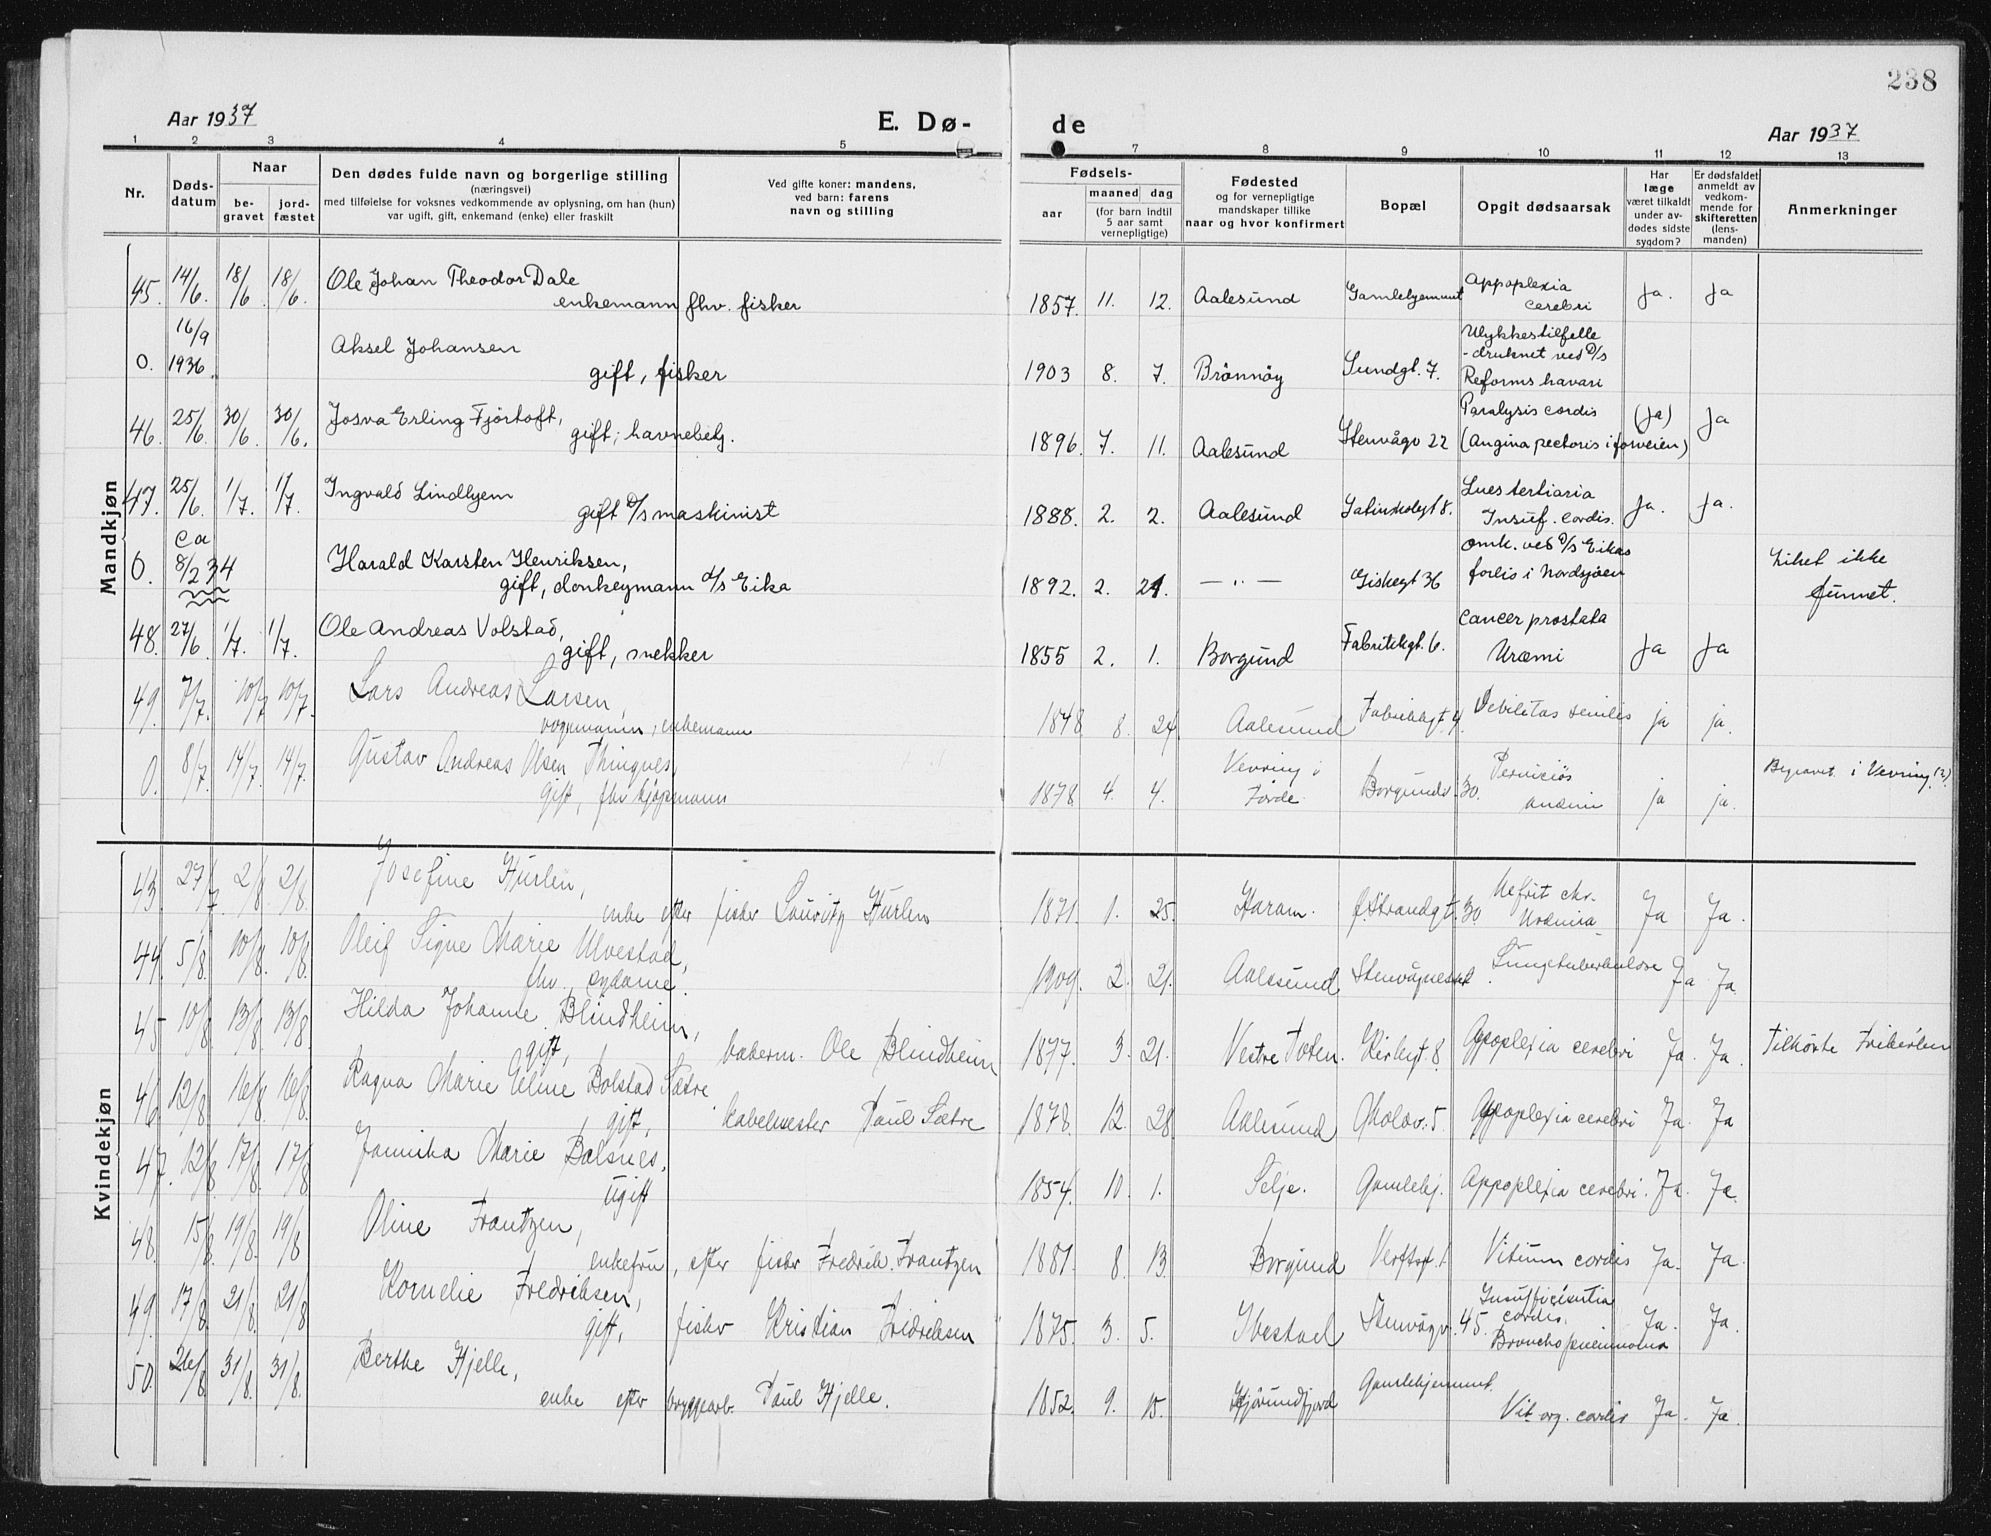 238
Aar 1937
E. Dø-
de
Aar 1937
1 2 3 4 5 7 8 9 10 11 12 13
Nr.
Døds-
datum
Naar
be-
gravet
jord-
fæstet
Den dødes fulde navn og borgerlige stilling
(næringsvei)
med tilføielse for voksnes vedkommende av oplysning, om han (hun)
var ugift, gift, enkemand (enke) eller fraskilt
Ved gifte koner: mandens,
ved barn: farens
navn og stilling
Fødsels-
aar
maaned dag
(for barn indtil
5 aar samt
vernepligtige)
Fødested
og for vernepligtige
mandskaper tillike
naar og hvor konfirmert
Bopæl
Opgit dødsaarsak
Har
læge
været tilkaldt
under av-
dødes sidste
sygdom?
Er dødsfaldet
anmeldt av
vedkom-
mende for
skifteretten
(lens-
manden)
Anmerkninger
Mandkjøn
45. 14/6. 18/6. 18/6. Ole Johan Theodor Dale
enkemann fhv. fisker
1857. 11. 12. Aalesund Gamlehjemmet Appoplexia
cerebri
Ja. Ja
0. 16/9
1936.
Aksel Johansen
gift, fisker
1903 8. 7. Brönnöy Sundgt. 7. Ulykkestilfelle
- druknet ved D/s
Reforms havari
46. 25/6. 30/6. 30/6. Josva Erling Fjörtoft,
gift; havnebetj.
1896. 7. 11. Aalesund Stenvågv 22 Paralysis cordis
(Angina pectoris i forveien)
(Ja) Ja
47. 25/6. 1/7. 1/7. Ingvald Lindhjem
gift D/s maskinist
1888. 2. 2. Aalesund Latinskolegt 8. Lues tertiaria
Insuf. cordis.
Ja. Ja.
0. ca
8/2 34
Harald Karsten Henriksen,
gift, donkeymann d/s Eika
1892. 2. 21. — " — Giskegt 36 omk. ved D/s Eikas
forlis i Nordsjøen
Liket ikke
funnet.
48. 27/6. 1/7. 1/7. Ole Andreas Volstad,
gift, snekker
1855 2. 1. Borgund Fabrikkgt. 6. Cancer prostata
Uræmi
Ja Ja
49. 7/7. 10/7 10/7. Lars Andreas Larsen,
vognmann, enkemann
1848 8. 24. Aalesund Fabrikkgt. 4. Debilitas senilis ja ja.
0. 8/7. 14/7. 14/7. Gustav Andreas Olsen Thingnes,
gift, fhv kjøpmann
1878. 4. 4. Vevring i
Förde.
Borgundv. 30. Perniciös
anæmi
ja ja.
Begravet i Vevring (?).
Kvindekjøn
43. 27/7. 2/8. 2/8. Josefine Hurlen,
enke efter fisker Lauritz Hurlen
1871. 1. 25. Haram. Ø. Strandgt. 30. Nefrit chr.
Urämia
Ja Ja.
44. 5/8. 10/8. 10/8. Oleif Signe Marie Ulvestad,
fhv. sydame.
1909. 2. 21. Aalesund Stenvågneset Lungetuberkulose Ja Ja.
45 10/8. 13/8. 13/8. Hilda Johanne Blindheim,
gift, bakerm. Ole Blindheim
1877. 3. 21. Vestre Toten. Kirkegt. 8. Appoplexia cerebri Ja. Ja. Tilhörte Frikirken
46. 12/8. 16/8. 16/8. Ragna Marie Eline Bolstad Sætre
gift, kabelmester Paul Sætre
1878. 12. 28. Aalesund Molov. 5. Appoplexia cerebri Ja. Ja
47. 12/8. 17/8. 17/8 Jannika Marie Balsnes,
ugift
1854. 10. 1. Selje. Gamlehj. Appoplexia cerebri. Ja. Ja.
48. 15/8. 19/8. 19/8 Oline Frantzen,
enkefru, efter fisker Fredrik Frantzen
1881. 8. 13. Borgund Verftsgt. 1. Vitium cordis Ja. Ja.
49. 17/8. 21/8. 21/8 Kornelie Fredriksen,
gift, fisker Kristian Fredriksen
1875. 3. 5. Ibestad Stenvågv. 45. Insufficientia
cordis.
Bronchopneumonia
Ja. Ja.
50. 26/8. 31/8. 31/8. Berthe Hjelle,
enke efter bryggearb. Paul Hjelle.
1852. 9. 15. Hjörundfjord Gamlehjemmet. Vit. org. cordis Ja. Ja.